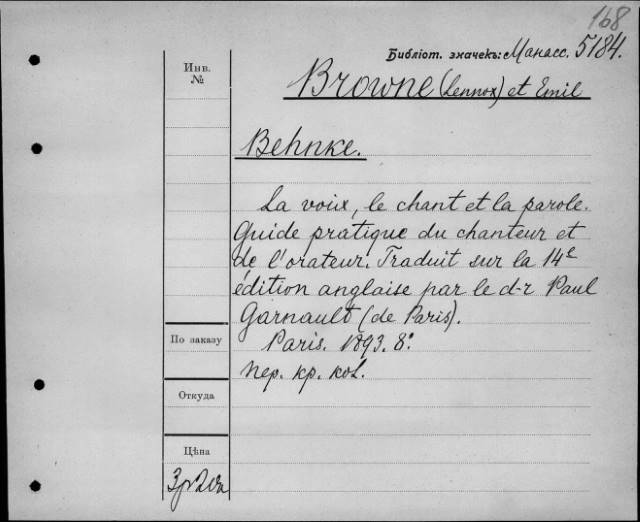 168
Библiот. значекъ: Манасс. 5184.
Инв.
№
Browne (Lennox) et Emil
Behnke.
La voix, le chant et la parole.
Guide pratique du chanteur et
de l'orateur. Traduit sur la 14e
édition anglaise par le d-r Paul
Garnault (de Paris).
По заказу
Paris. 1893. 8°.
пер. кр. кол.
Откуда
Цѣна
3р